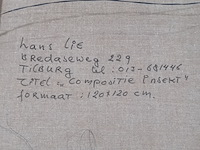 Hans LIE
BREDASEWEG 229
TILBURG tel: 013-681446
titel "COMPOSITIE INSEKT"
formaat: 120x120 cm.